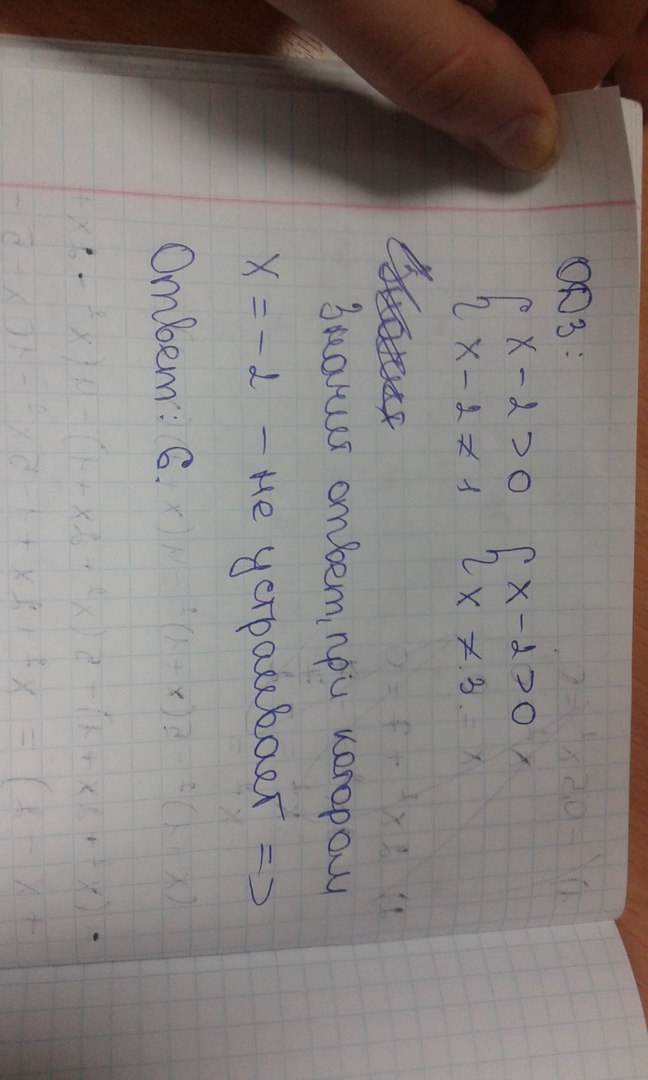 ОДЗ:
{ x - 2 > 0 { x - 2 > 0
{ x - 2 ≠ 1 { x ≠ 3.
Значит ответ, при котором
x = - 2 - не устраивает =>
Ответ: 6.